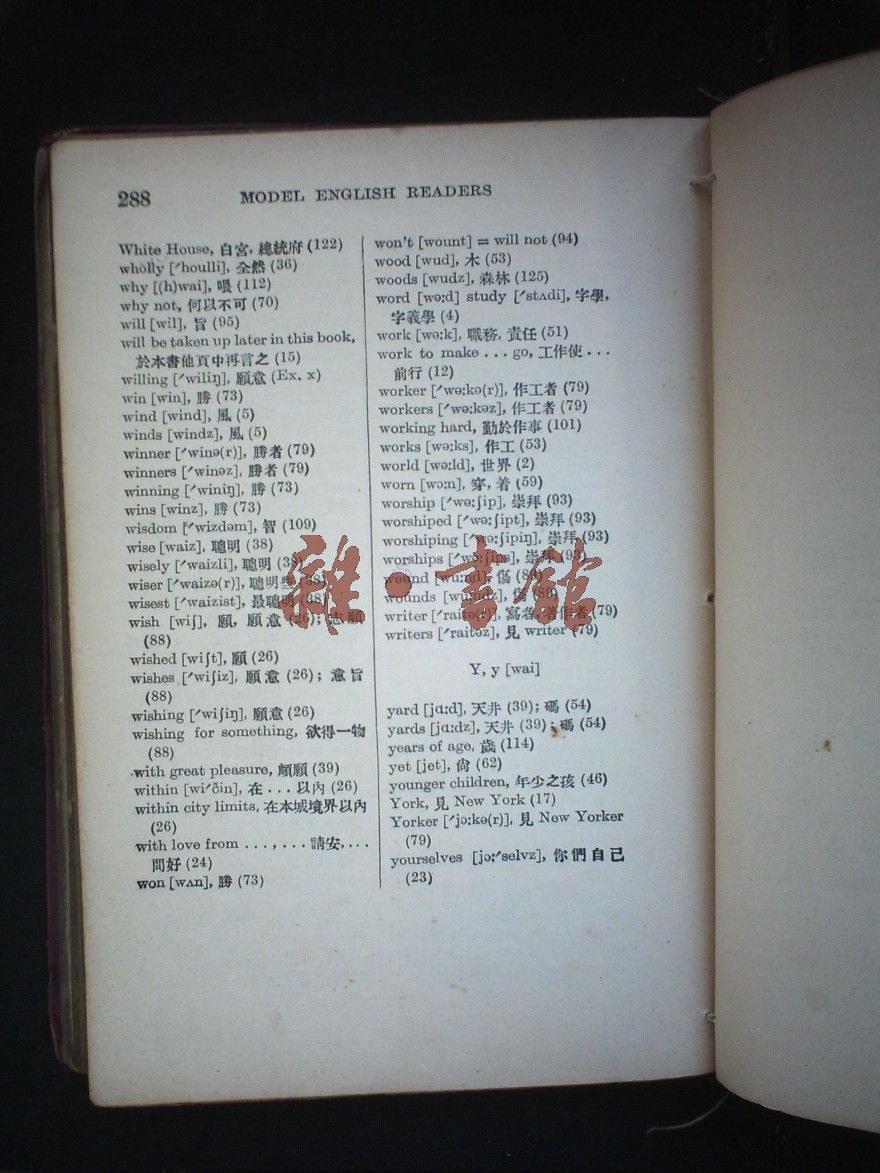 288
MODEL ENGLISH READERS
White House, 白宮, 總統府 (122)
wholly [′houlli], 全然 (36)
why [(h)wai], 喂 (112)
why not, 何以不可 (70)
will [wil], 旨 (95)
will be taken up later in this book,
於本書他頁中再言之 (15)
willing [′wiliŋ], 願意 (Ex. x)
win [win], 勝 (73)
wind [wind], 風 (5)
winds [windz], 風 (5)
winner [′winə(r)], 勝者 (79)
winners [′winəz], 勝者 (79)
winning [′winiŋ], 勝 (73)
wins [winz], 勝 (73)
wisdom [′wizdəm], 智 (109)
wise [waiz], 聰明 (38)
wisely [′waizli], 聰明 (38)
wiser [′waizə(r)], 聰明些 (38)
wisest [′waizist], 最聰明 (38)
wish [wiʃ], 願, 願意 (26); 志願
(88)
wished [wiʃt], 願 (26)
wishes [′wiʃiz], 願意 (26); 意旨
(88)
wishing [′wiʃiŋ], 願意 (26)
wishing for something, 欲得一物
(88)
with great pleasure, 頗願 (39)
within [wi′ðin], 在 . . . 以內 (26)
within city limits, 在本城境界以內
(26)
with love from . . . , . . . 請安, . . .
問好 (24)
won [wʌn], 勝 (73)
won't [wount] = will not (94)
wood [wud], 木 (53)
woods [wudz], 森林 (125)
word [wə:d] study [′stʌdi], 字學,
字義學 (4)
work [wə:k], 職務, 責任 (51)
work to make . . . go, 工作使 . . .
前行 (12)
worker [′wə:kə(r)], 作工者 (79)
workers [′wə:kəz], 作工者 (79)
working hard, 勤於作事 (101)
works [wə:ks], 作工 (53)
world [wə:ld], 世界 (2)
worn [wɔ:n], 穿, 着 (59)
worship [′wə:ʃip], 崇拜 (93)
worshiped [′wə:ʃipt], 崇拜 (93)
worshiping [′wə:ʃipiŋ], 崇拜 (93)
worships [′wə:ʃips], 崇拜 (93)
wound [wu:nd], 傷 (89)
wounds [wu:ndz], 傷 (89)
writer [′raitə(r)], 寫者, 著作者 (79)
writers [′raitəz], 見 writer (79)
Y, y [wai]
yard [jɑ:d], 天井 (39); 碼 (54)
yards [jɑ:dz], 天井 (39); 碼 (54)
years of age, 歲 (114)
yet [jet], 尙 (62)
younger children, 年少之孩 (46)
York, 見 New York (17)
Yorker [′jɔ:kə(r)], 見 New Yorker
(79)
yourselves [jɔ:′selvz], 你們自己
(23)
雜·書館